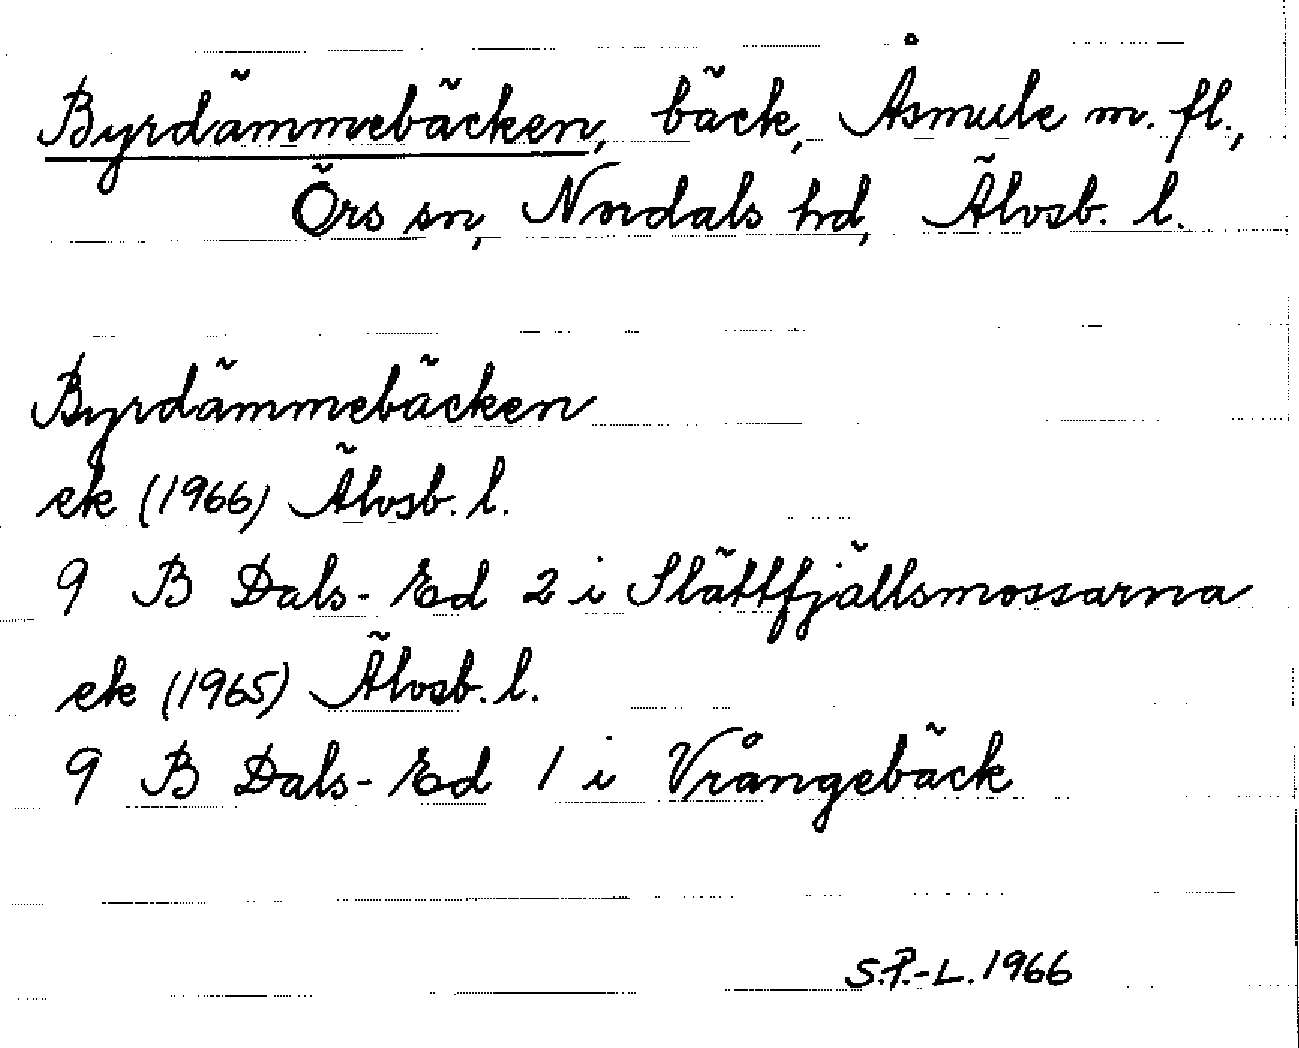 Byrdämmebäcken, bäck, Åsmule m. fl.,
Örs sn, Nordals hd, Älvsb. l.
Byrdämmebäcken
ek (1966) Älvsb. l.
9 B Dals-Ed 2 i Slättfjällsmossarna
ek (1965) Älvsb. l.
9 B Dals-Ed 1 i Vrångebäck
S.P.-L. 1966